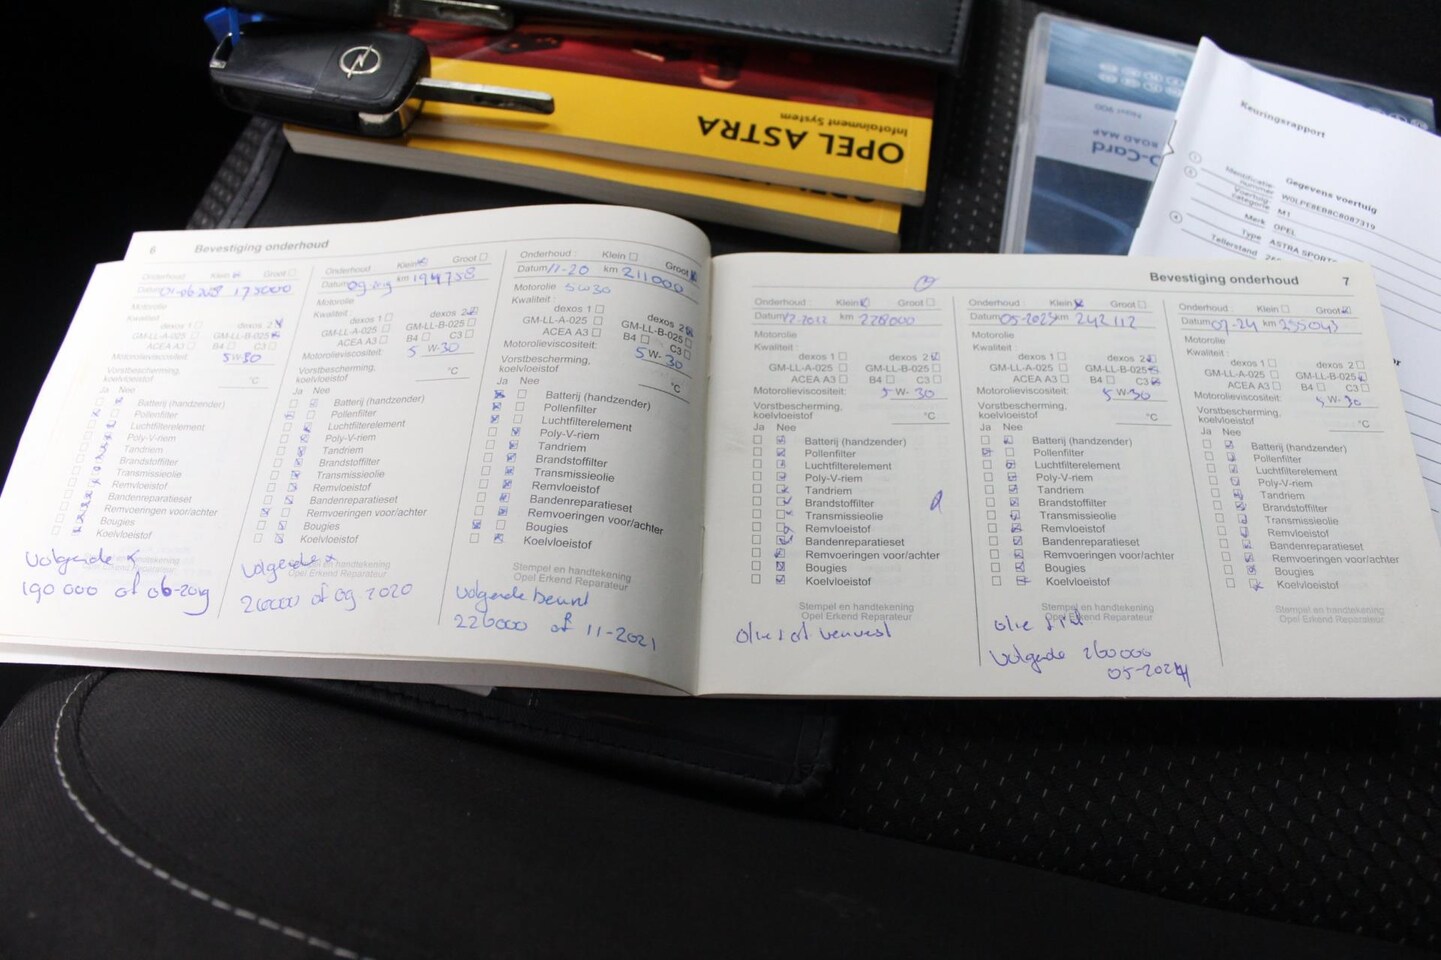 OPEL ASTRA
Infotainment System
D-Card
ROAD MAP
Keuringsrapport
Gegevens voertuig
Identificatie-
nummer
Voertuig-
categorie
M1
Merk
OPEL
Type
ASTRA SPORTS
Tellerstand
6
Bevestiging onderhoud
Onderhoud: Klein Groot
Datum 175000
Motorolie
Kwaliteit
dexos 1 dexos 2
GM-LL-A-025 GM-LL-B-025
ACEA A3 B4 C3
Motorolieviscositeit: 5W-30
Vorstbescherming,
koelvloeistof °C
Ja Nee
Batterij (handzender)
Pollenfilter
Luchtfilterelement
Poly-V-riem
Tandriem
Brandstoffilter
Transmissieolie
Remvloeistof
Bandenreparatieset
Remvoeringen voor/achter
Bougies
Koelvloeistof
Volgende
190 000 of 06-2019
Onderhoud: Klein Groot
Datum 09 km 194758
Motorolie
Kwaliteit:
dexos 1 dexos 2
GM-LL-A-025 GM-LL-B-025
ACEA A3 B4 C3
Motorolieviscositeit: 5 W-30
Vorstbescherming,
koelvloeistof °C
Ja Nee
Batterij (handzender)
Pollenfilter
Luchtfilterelement
Poly-V-riem
Tandriem
Brandstoffilter
Transmissieolie
Remvloeistof
Bandenreparatieset
Remvoeringen voor/achter
Bougies
Koelvloeistof
Stempel en handtekening
Opel Erkend Reparateur
Volgende
of 09 2020
Onderhoud: Klein Groot
Datum 11-20 km 211000
Motorolie 5W30
Kwaliteit:
dexos 1 dexos 2
GM-LL-A-025 GM-LL-B-025
ACEA A3 B4 C3
Motorolieviscositeit: 5 W-30
Vorstbescherming,
koelvloeistof °C
Ja Nee
Batterij (handzender)
Pollenfilter
Luchtfilterelement
Poly-V-riem
Tandriem
Brandstoffilter
Transmissieolie
Remvloeistof
Bandenreparatieset
Remvoeringen voor/achter
Bougies
Koelvloeistof
Stempel en handtekening
Opel Erkend Reparateur
Volgende beurt
226000 of 11-2021
Bevestiging onderhoud
7
Onderhoud: Klein Groot
Datum km 228000
Motorolie
Kwaliteit:
dexos 1 dexos 2
GM-LL-A-025 GM-LL-B-025
ACEA A3 B4 C3
Motorolieviscositeit: 5 W- 30
Vorstbescherming,
koelvloeistof °C
Ja Nee
Batterij (handzender)
Pollenfilter
Luchtfilterelement
Poly-V-riem
Tandriem
Brandstoffilter
Transmissieolie
Remvloeistof
Bandenreparatieset
Remvoeringen voor/achter
Bougies
Koelvloeistof
Stempel en handtekening
Opel Erkend Reparateur
Onderhoud: Klein Groot
Datum 05-2023 km 242 112
Motorolie
Kwaliteit
dexos 1 dexos 2
GM-LL-A-025 GM-LL-B-025
ACEA A3 B4 C3
Motorolieviscositeit: 5 W-30
Vorstbescherming,
koelvloeistof °C
Ja Nee
Batterij (handzender)
Pollenfilter
Luchtfilterelement
Poly-V-riem
Tandriem
Brandstoffilter
Transmissieolie
Remvloeistof
Bandenreparatieset
Remvoeringen voor/achter
Bougies
Koelvloeistof
Stempel en handtekening
Opel Erkend Reparateur
Volgende 260000
05-2024
Onderhoud: Klein Groot
Datum 07-24 km 255043
Motorolie
Kwaliteit:
dexos 1 dexos 2
GM-LL-A-025 GM-LL-B-025
ACEA A3 B4 C3
Motorolieviscositeit: 5 W- 30
Vorstbescherming,
koelvloeistof °C
Ja Nee
Batterij (handzender)
Pollenfilter
Luchtfilterelement
Poly-V-riem
Tandriem
Brandstoffilter
Transmissieolie
Remvloeistof
Bandenreparatieset
Remvoeringen voor/achter
Bougies
Koelvloeistof
Stempel en handtekening
Opel Erkend Reparateur